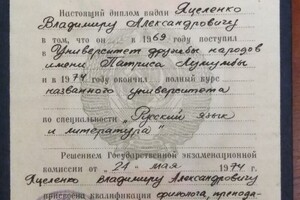 Настоящий диплом выдан Яценко
Владимиру Александровичу
в том, что он в 1969 году поступил
в Университет дружбы народов
имени Патриса Лумумбы
и в 1974 году окончил полный курс
названного университета
по специальности „Русский язык
и литература"
Решением Государственной экзаменационной
комиссии от „24" мая 1974 г.
Владимиру Александровичу
присвоена квалификация филолога, препода-